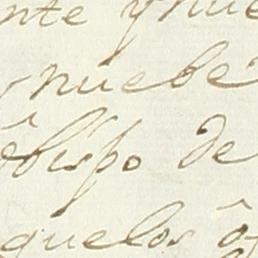 nte y nue
y nuebe
ôbispo de
quelos ô